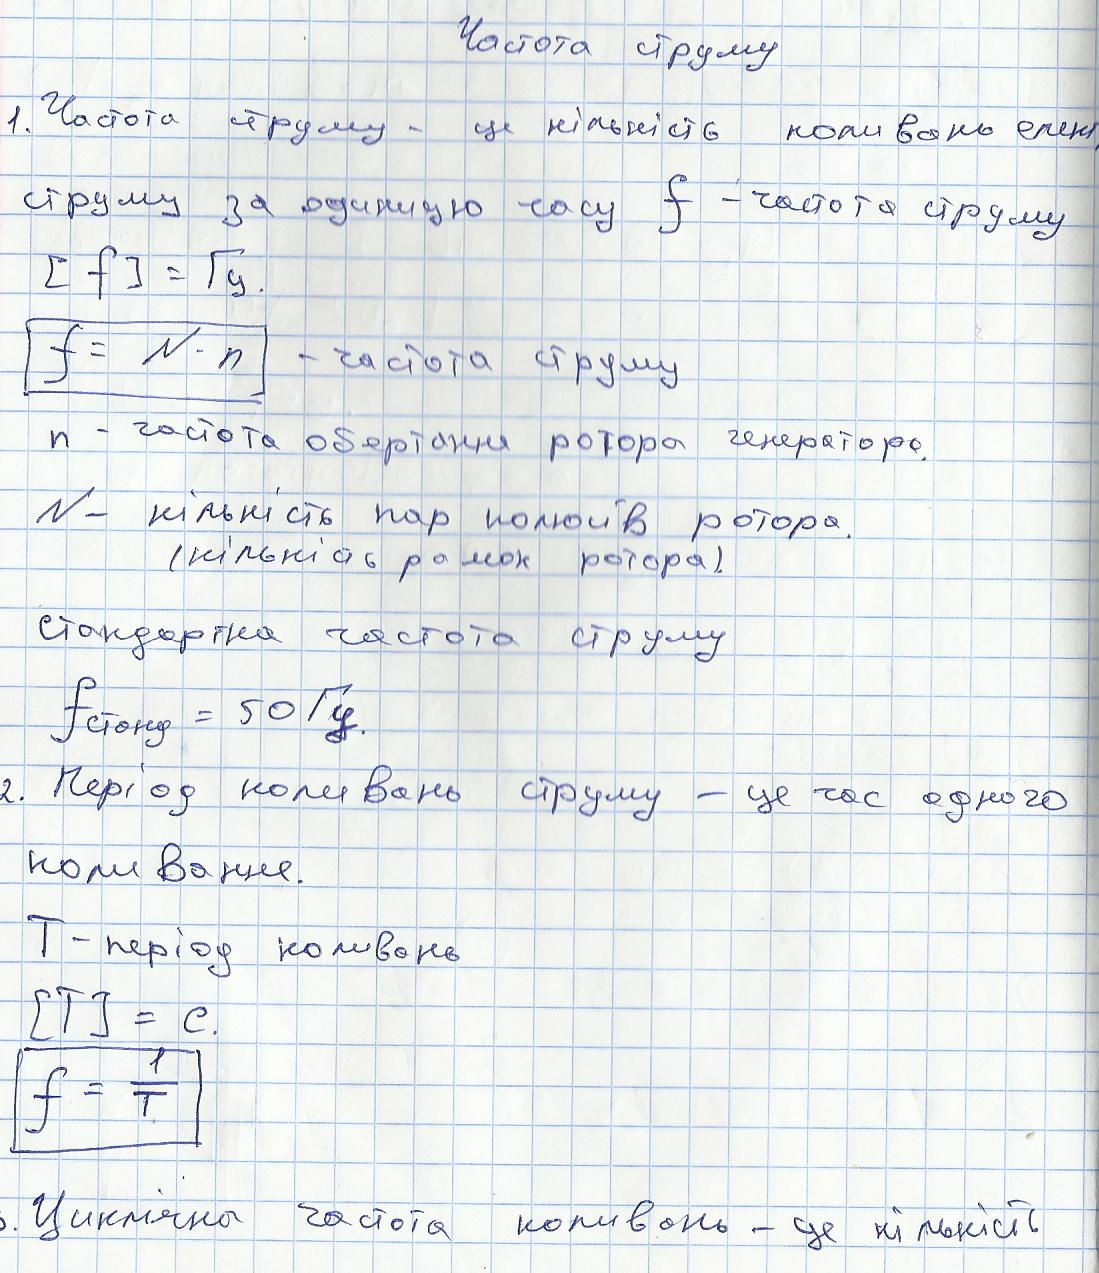 Частота струму
1. Частота струму - це кількість коливань елект.
струму за одиницю часу f - частота струму
[f] = Гц.
f = N · n - частота струму
n - частота обертання ротора генератора.
N - кількість пар полюсів ротора.
(кількість рамок ротора).
Стандартна частота струму
fстанд = 50 Гц.
2. Період коливань струму - це час одного
коливання.
T - період коливань
[T] = с.
f = 1/T
3. Циклічна частота коливань - це кількість